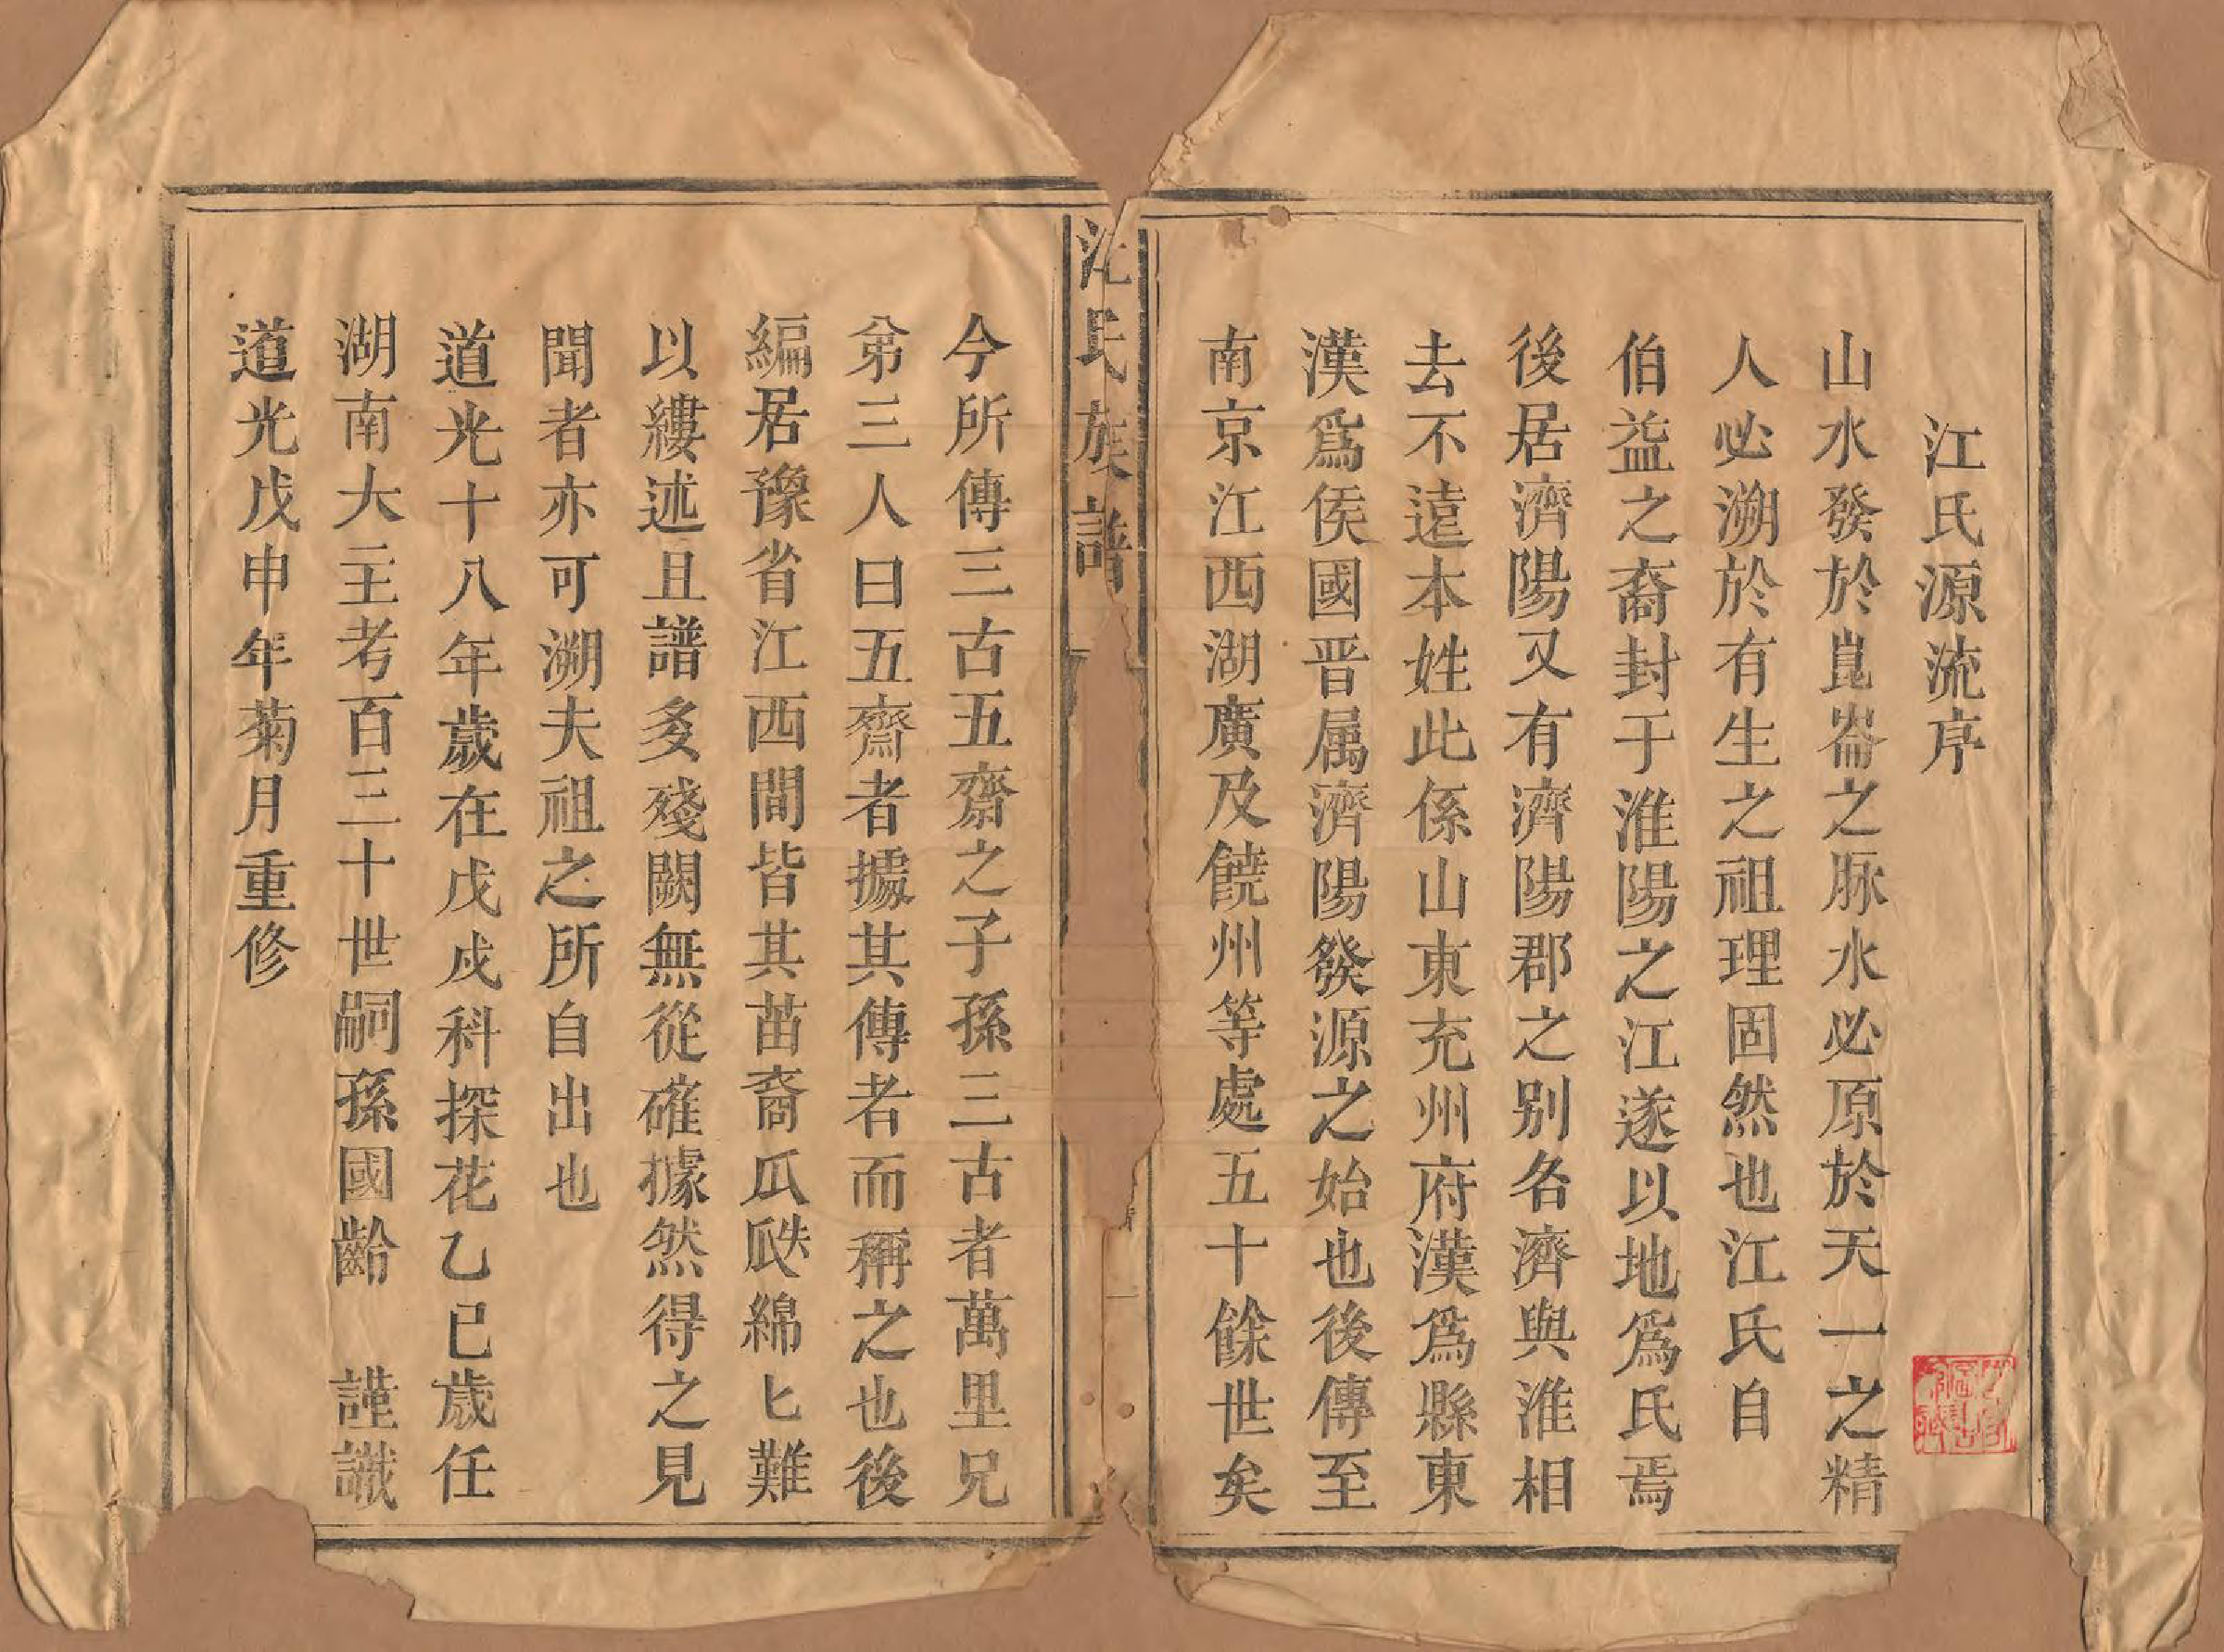 江氏源流序
山水發於崑崙之脉水必原於天一之精
人必溯於有生之祖理固然也江氏自
伯益之裔封于淮陽之江遂以地爲氏焉
後居濟陽又有濟陽郡之别名濟與淮相
去不遠本姓此係山東充州府漢爲縣東
漢爲侯國晋属濟陽發源之始也後傳至
南京江西湖廣及饒州等處五十餘世矣
江氏族譜
一
今所傳三古五齋之子孫三古者萬里兄
弟三人曰五齋者據其傳者而稱之也後
編居豫省江西間皆其苗裔瓜瓞綿匕難
以縷述且譜多殘闕無從確據然得之見
聞者亦可溯夫祖之所自出也
道光十八年歲在戊戌科探花乙巳歲任
湖南大主考百三十世嗣孫國齡 謹識
道光戊申年菊月重修